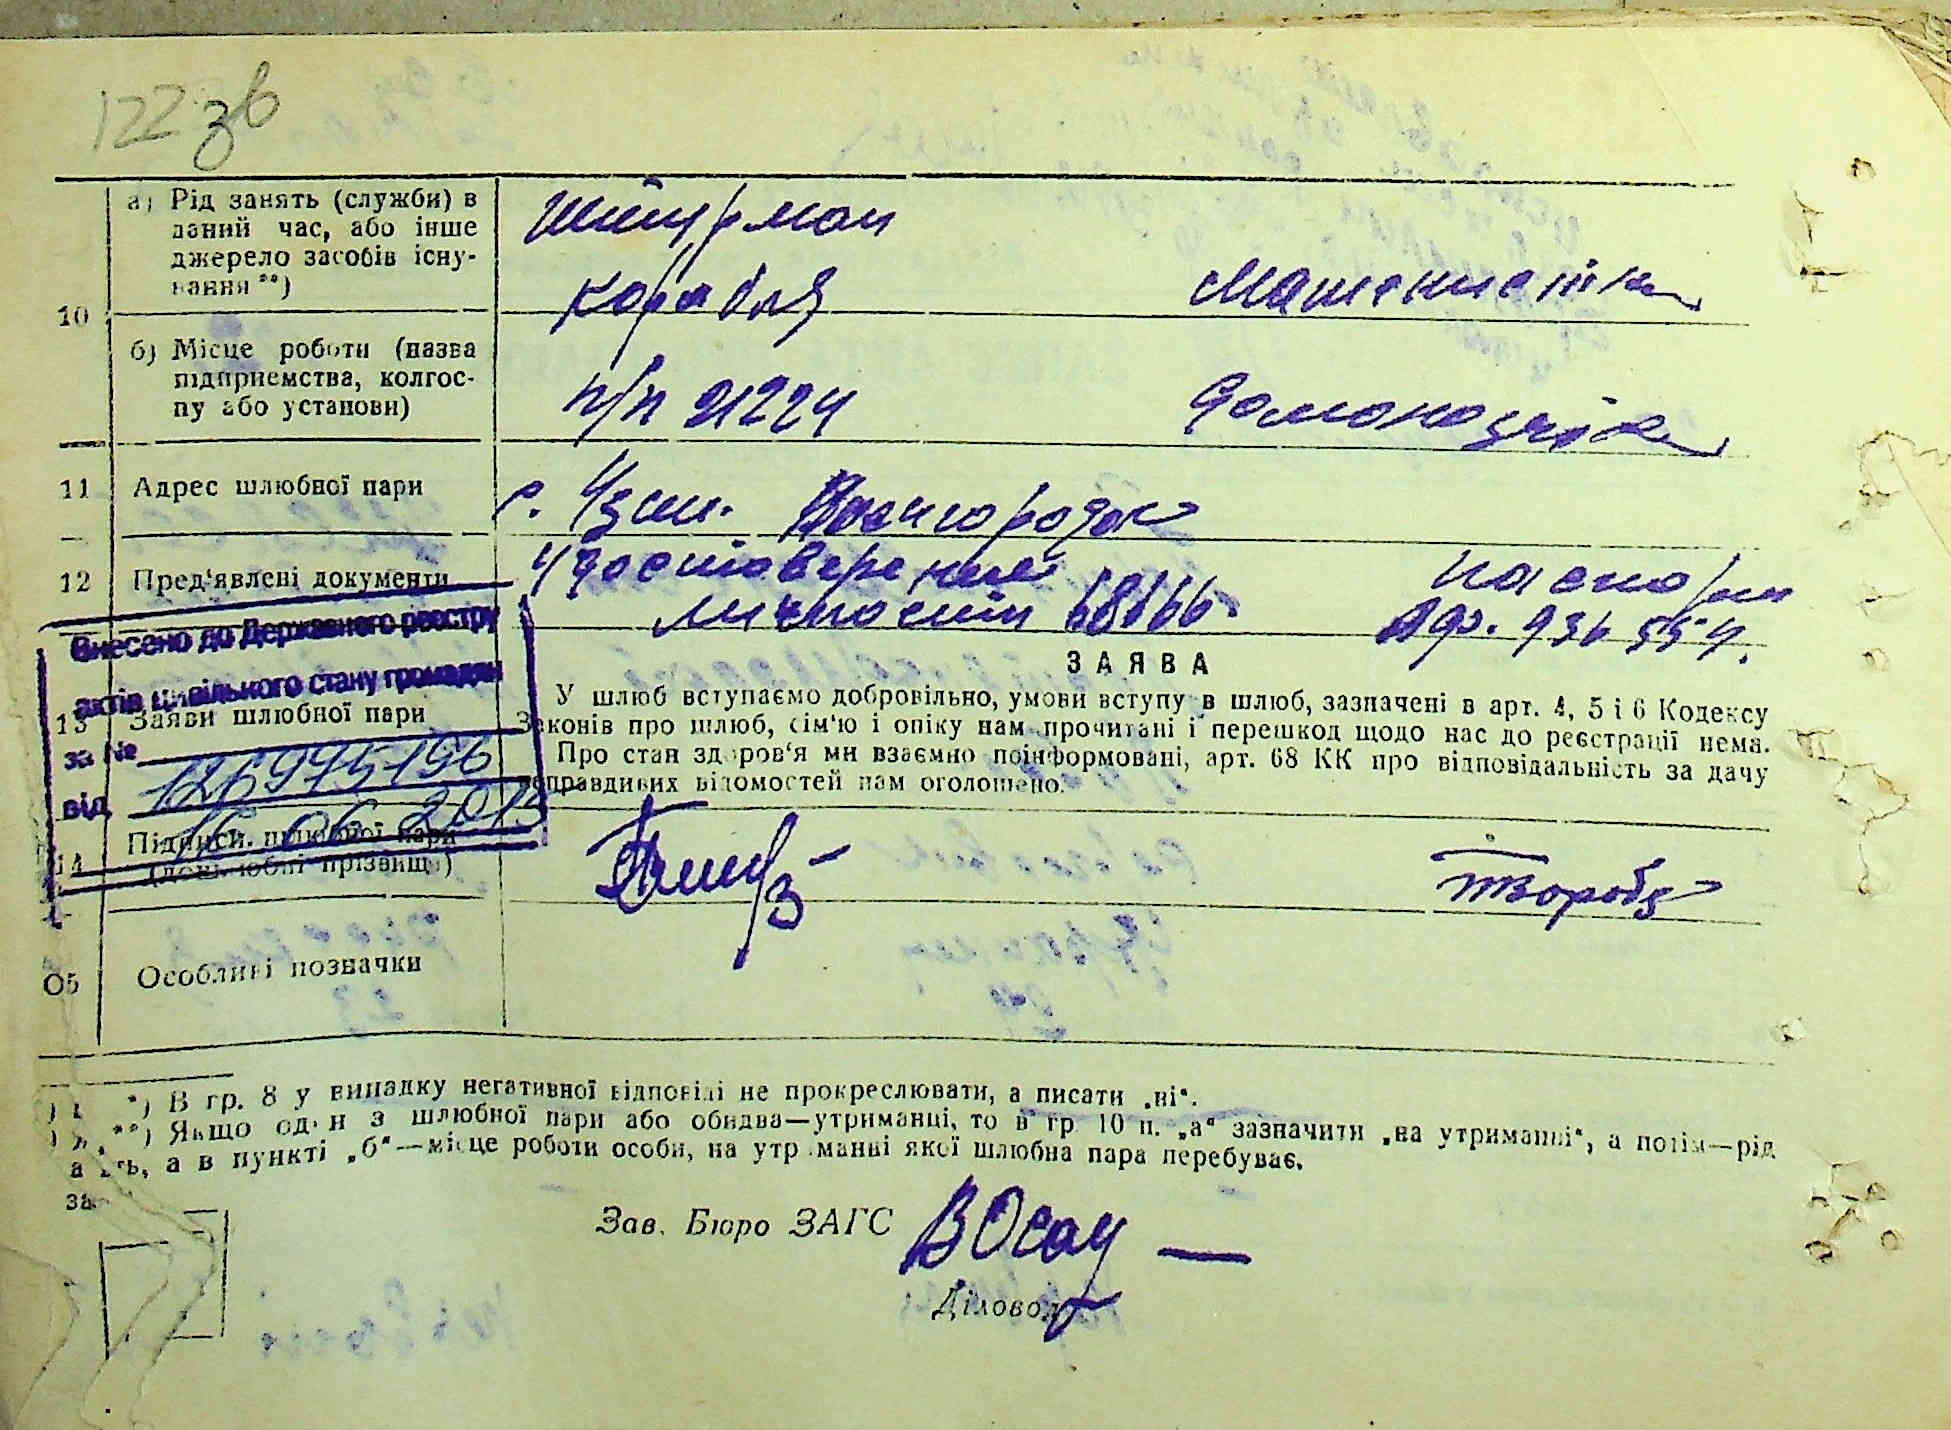 122 зв
10
а) Рід занять (служби) в
даний час, або інше
джерело засобів існу-
вання **)
Штурман
корабля
Машенистка
б) Місце роботи (назва
підприємства, колгос-
пу або установи)
п/п 21224
Домохозяйка
11
Адрес шлюбної пари
с. Узин. Военгородок
12
Пред'явлені документи
Удостоверение
личности
паспорт
Внесено до Державного реєстру
актів цивільного стану громадян
за №
126975196
від
16.06.2013
13
Заяви шлюбної пари
ЗАЯВА
У шлюб вступаємо добровільно, умови вступу в шлюб, зазначені в арт. 4, 5 і 6 Кодексу
Законів про шлюб, сім'ю і опіку нам прочитані і перешкод щодо нас до реєстрації нема.
Про стан здоров'я ми взаємно поінформовані, арт. 68 КК про відповідальність за дачу
неправдивих відомостей нам оголошено.
14
Підписи шлюбної пари
(дошлюбні прізвища)
05
Особливі позначки
*) В гр. 8 у випадку негативної відповіді не прокреслювати, а писати „ні“.
**) Якщо один з шлюбної пари або обидва—утриманці, то в гр 10 п. „а“ зазначити „на утриманні“, а потім—рід
а в пункті „б“—місце роботи особи, на утриманні якої шлюбна пара перебуває.
Зав. Бюро ЗАГС
Діловод